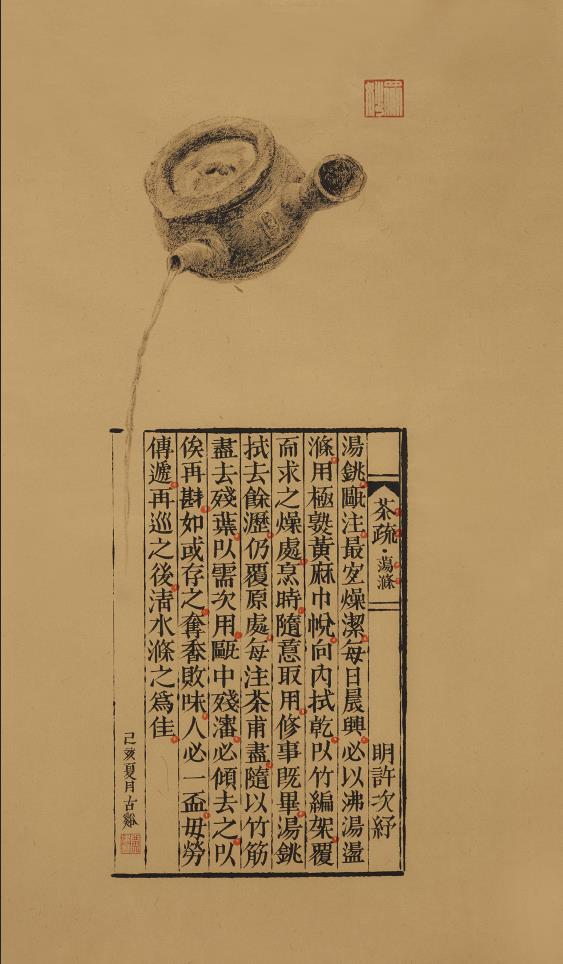 茶疏·蕩滌 明許次紓
湯銚甌注最宜燥潔每日晨興必以沸湯盪
滌用極熟黃麻巾帨向內拭乾以竹編架覆
而求之燥處烹時隨意取用修事既畢湯銚
拭去餘瀝仍覆原處每注茶甫盡隨以竹筋
盡去殘葉以需次用甌中殘瀋必傾去之以
俟再斟如或存之奪香敗味人必一盃毋勞
傳遞再巡之後清水滌之爲佳
己亥夏月古谿